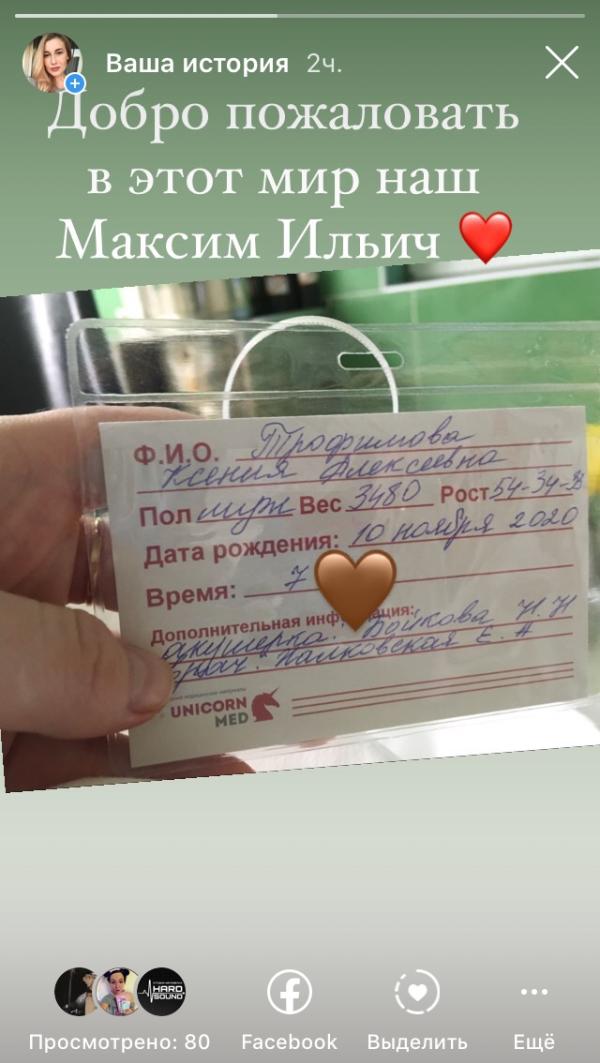 Ваша история 2ч.
Добро пожаловать
в этот мир наш
Максим Ильич ❤️
Ф.И.О. Трофимова
Ксения Алексеевна
Пол муж Вес 3480 Рост 54-34-
Дата рождения: 10 ноября 2020
Время: 7
Дополнительная
акушерка: Бойкова Н. Н
врач: Палковская Е. А
UNICORN
MED
HARD
SOUND
Просмотрено: 80 Facebook Выделить Ещё